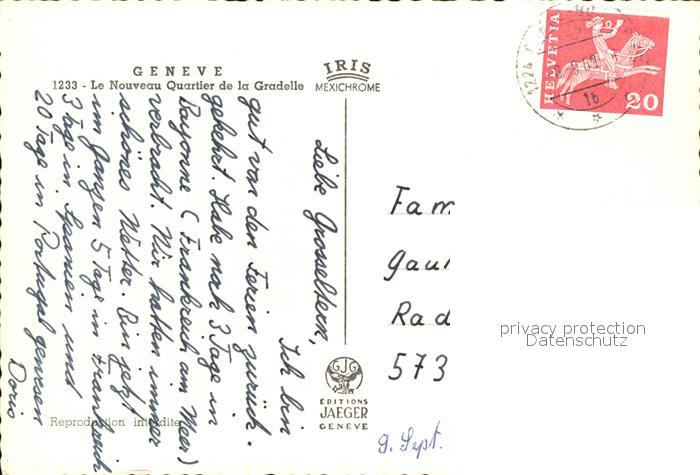 GENEVE
1233 - Le Nouveau Quartier de la Gradelle
IRIS
MEXICHROME
HELVETIA
20
1224
16
Liebe Grosseltern,
Ich bin
gut von den Ferien zurück.
gekehrt. Habe nah 3 Tage in
Bayonne (Frankreich am Meer)
verbracht. Wir hatten immer
schönes Wetter. Bin jetzt
im ganzen 5 Tage in Frankreich
3 Tage in Spanien und
20 Tage in Portugal gewesen
Doris
Fam
Gau
Rad
573
privacy protection
Datenschutz
GJG
EDITIONS
JAEGER
GENEVE
Reproduction interdite
9. Sept.